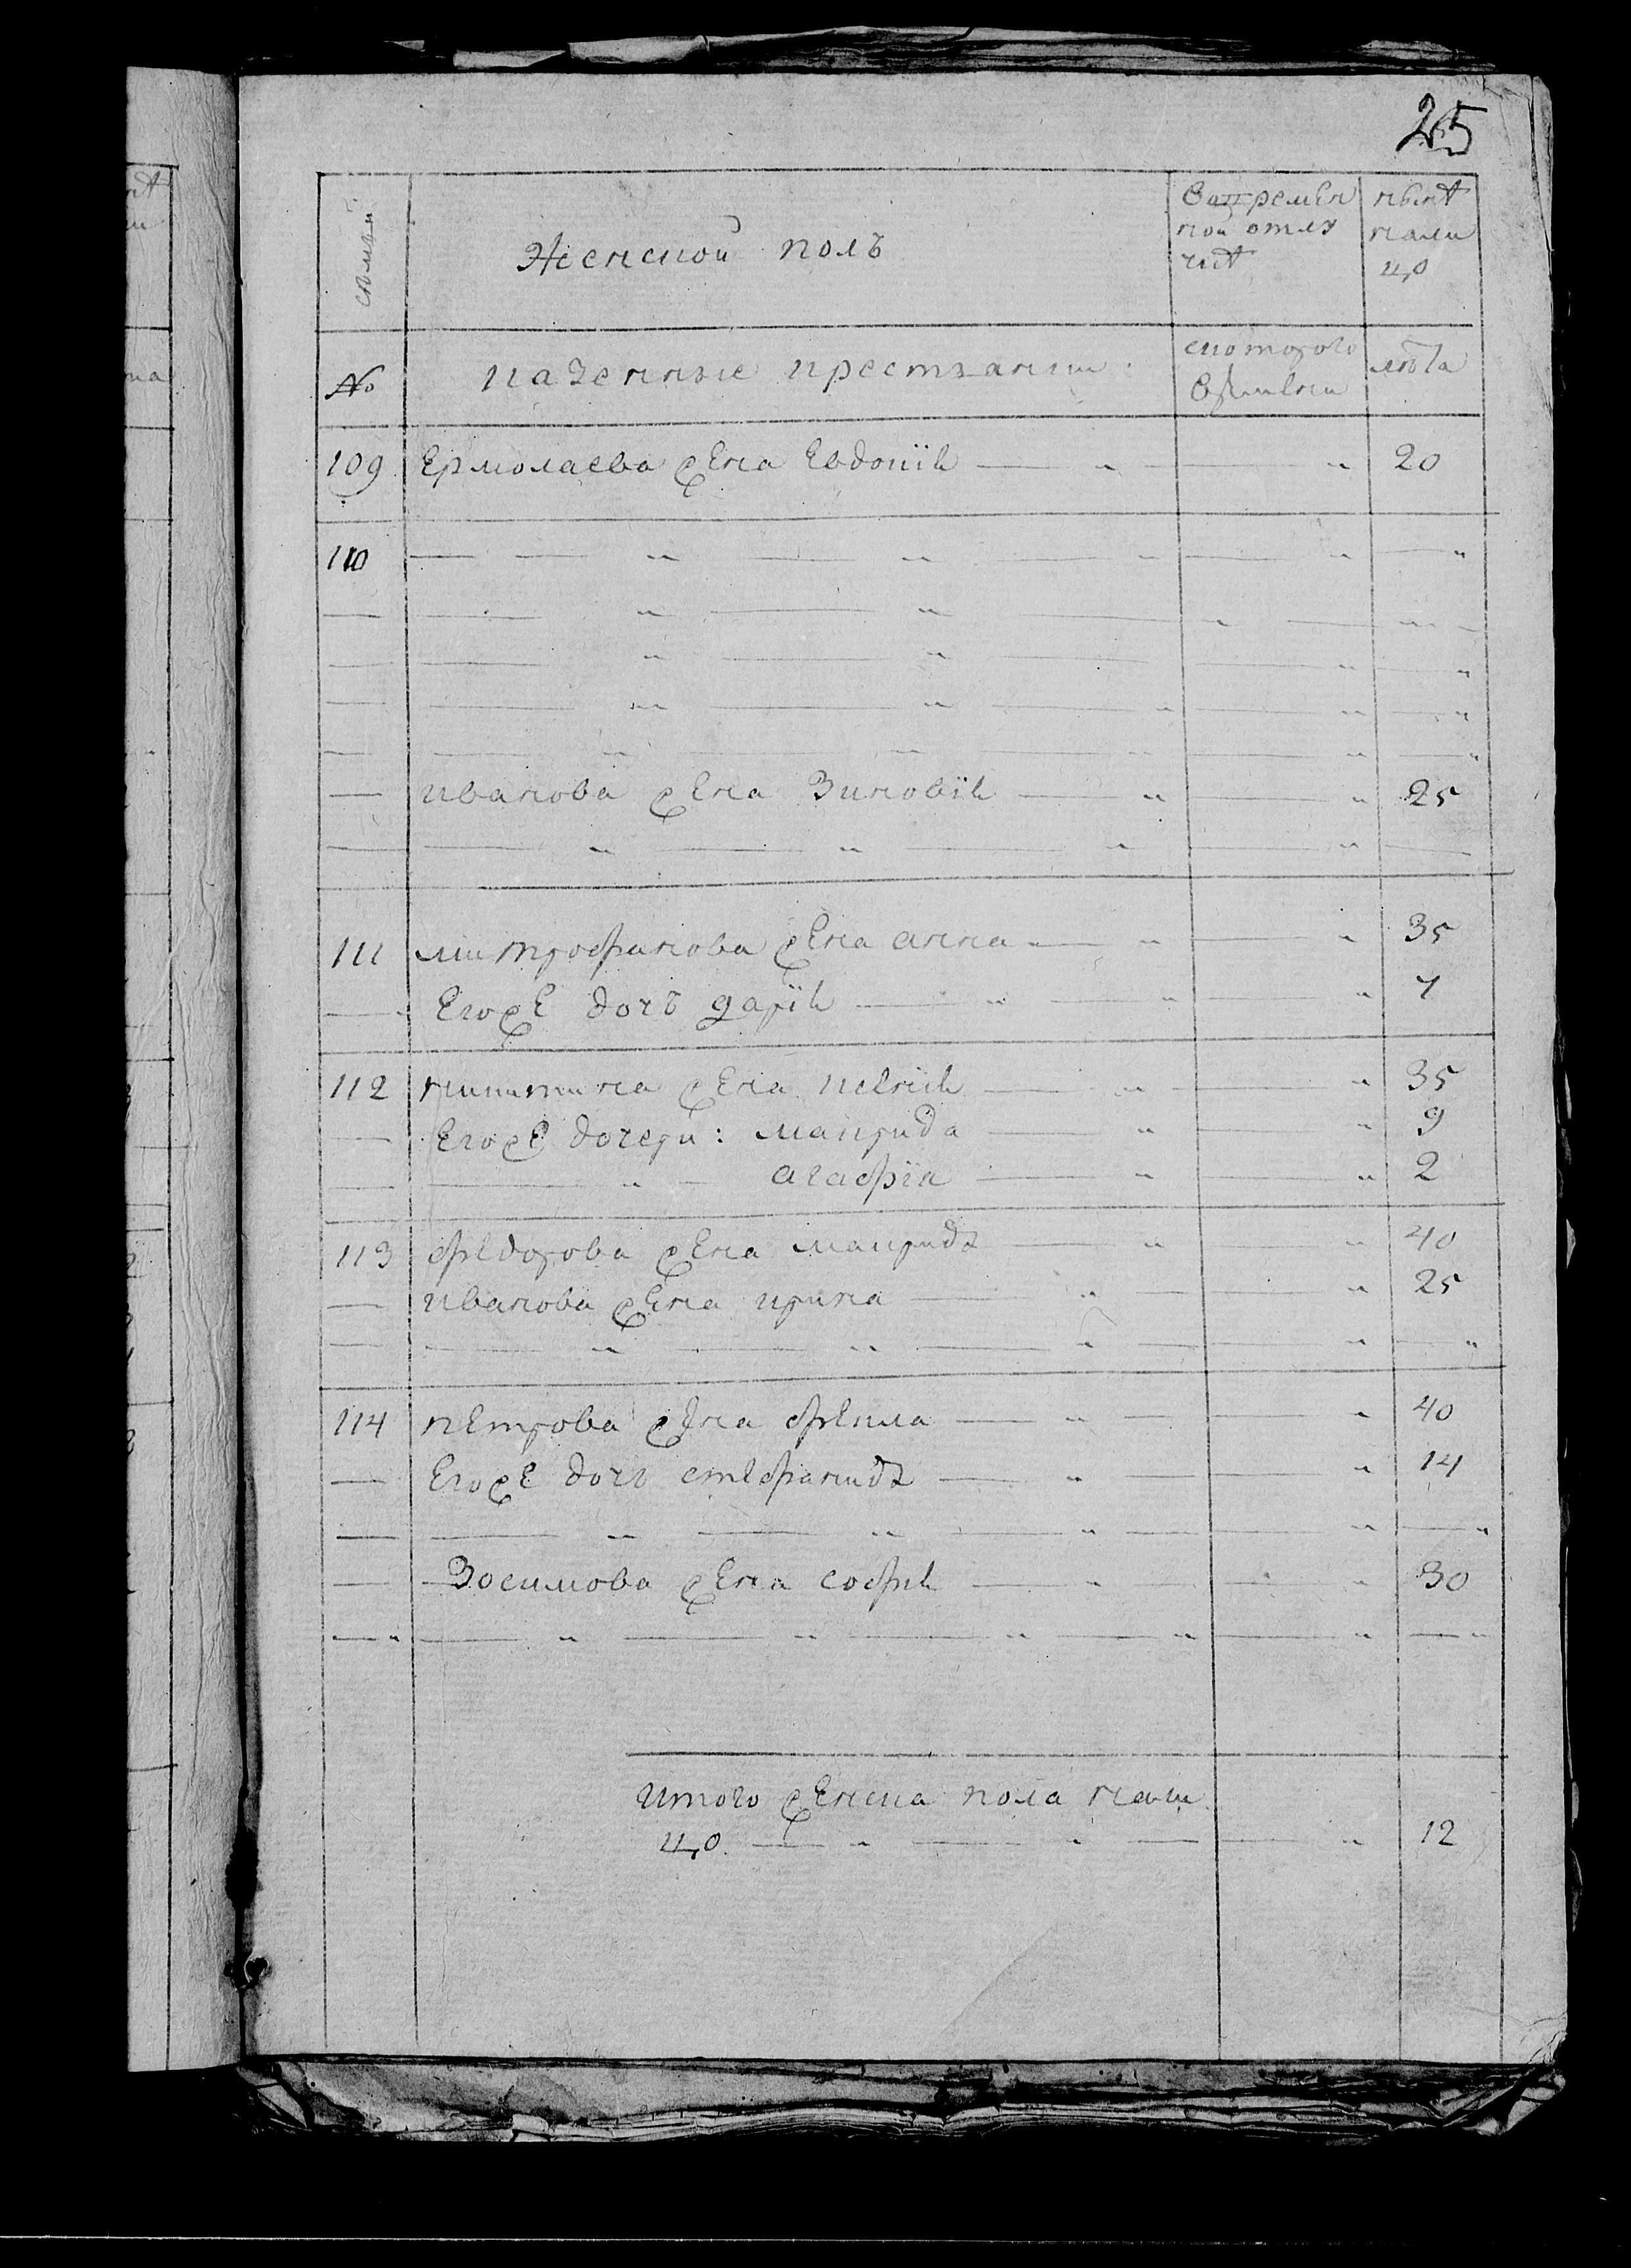 25
семьи
Женской полъ
во временной отлучкѣ
нынѣ на лицо
№
казенные крестьяни
с которого времени
лѣта
109 Ермолаева жена Евдокія 20
110
Иванова жена Зиновія 25
111 Митрофанова жена анна 35
Егоже дочь дарія 7
112 Никитина жена ксенія 35
Егоже дочери: Макрида 9
агафія 2
113 Федорова жена Макрида 40
Иванова жена ирина 25
114 Петрова жена Фекла 40
Егоже дочь стефанида 14
Зосимова жена софія 30
Итого женска пола на ли
цо 12